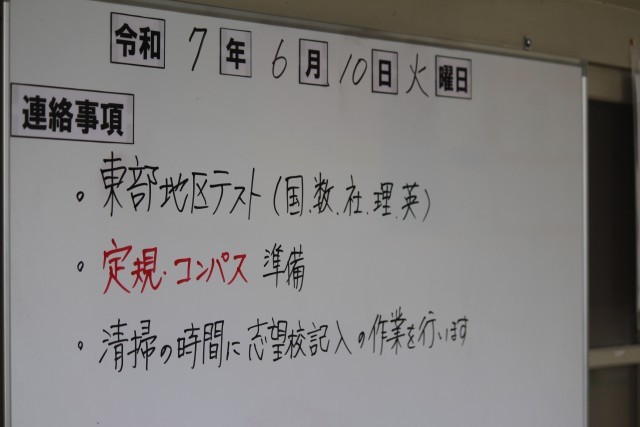 令和 7 年 6 月 10 日 火 曜日
連絡事項
。東部地区テスト(国.数.社.理.英)
。定規・コンパス 準備
。清掃の時間に志望校記入の作業を行います